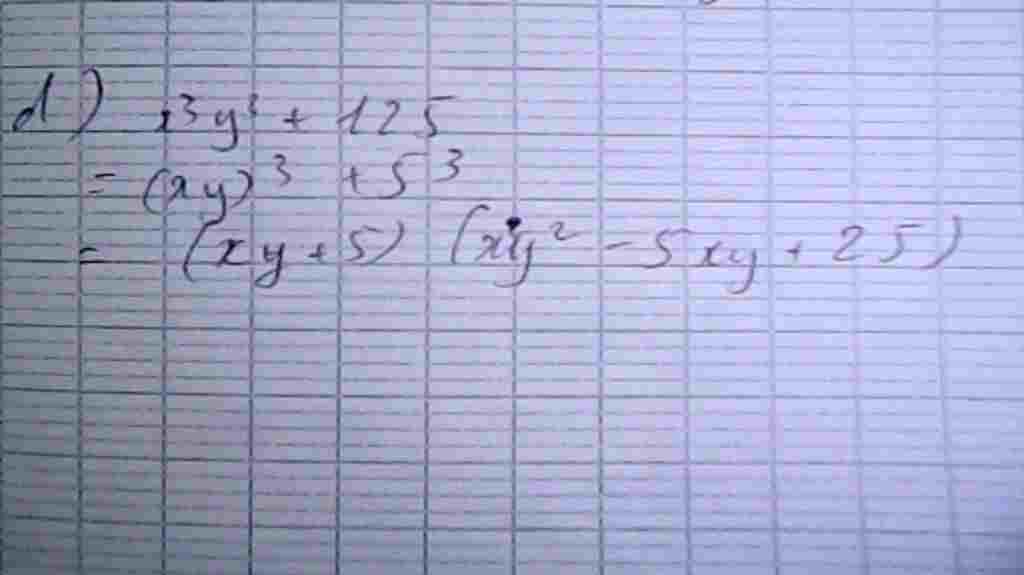 d) x³y³ + 125
= (xy)³ + 5³
= (xy + 5) (x²y² - 5xy + 25)